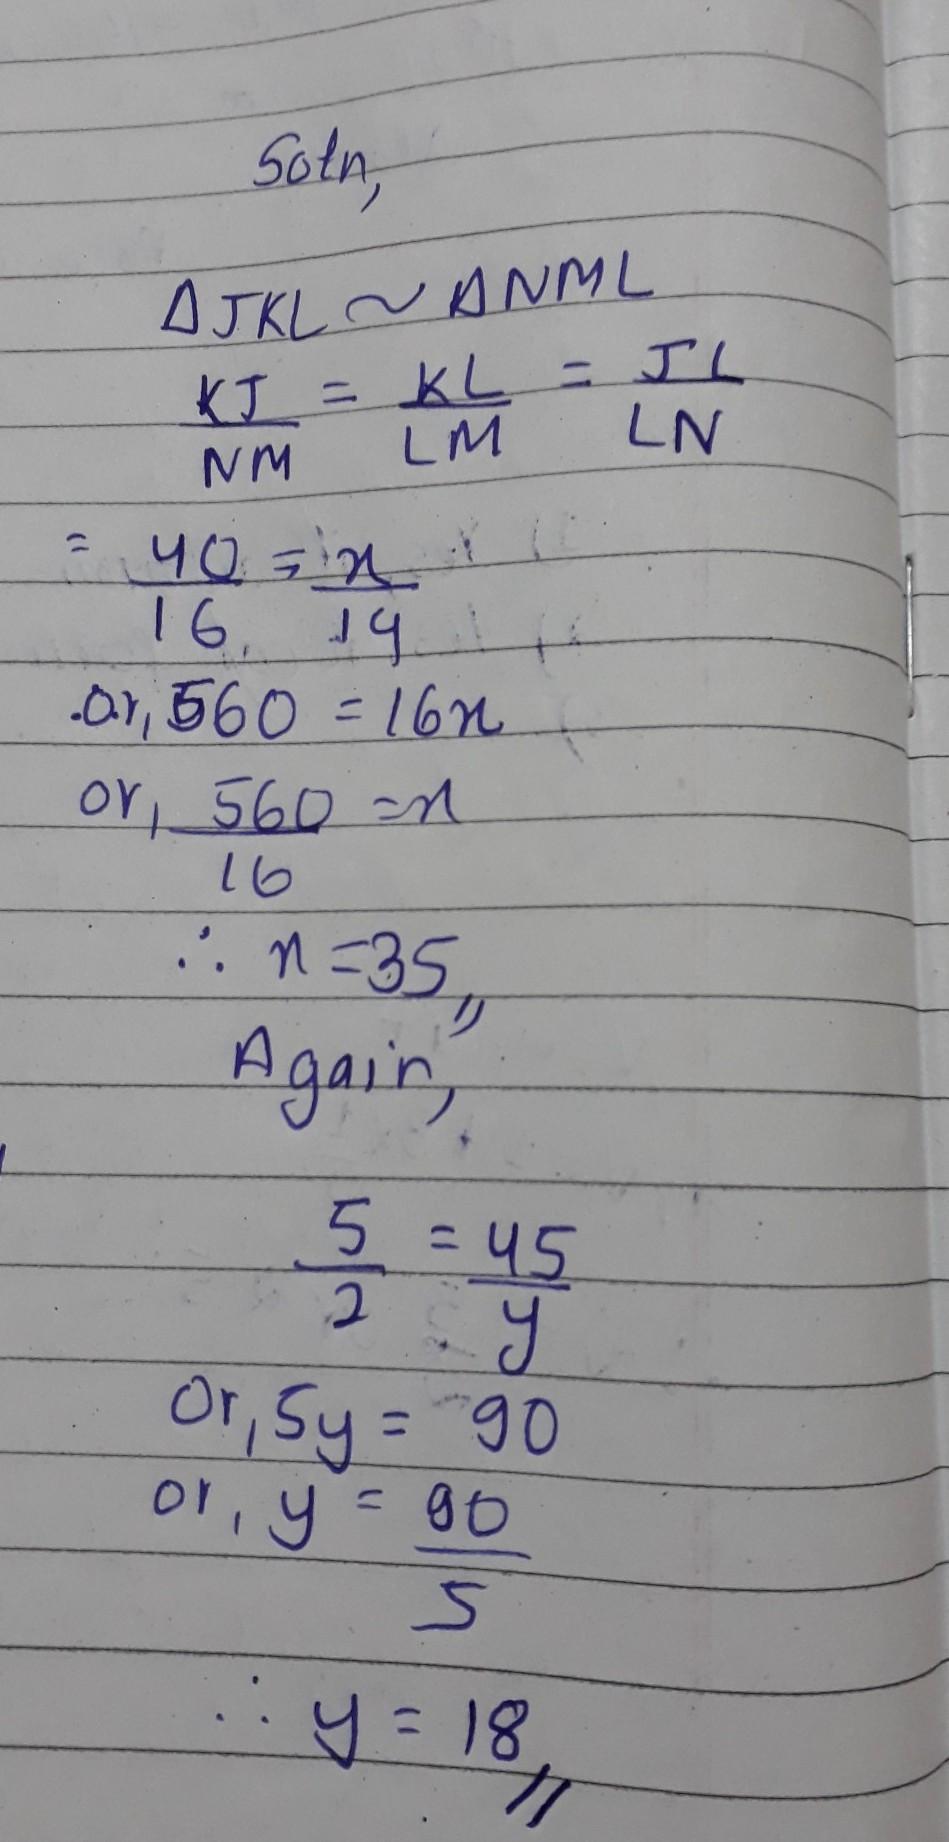 Soln,
Δ JKL ~ Δ NML
KJ/NM = KL/LM = JL/LN
= 40/16 = x/14
or, 560 = 16x
or, 560/16 = x
∴ x = 35,,
Again,
5/2 = 45/y
Or, 5y = 90
or, y = 90/5
∴ y = 18,,